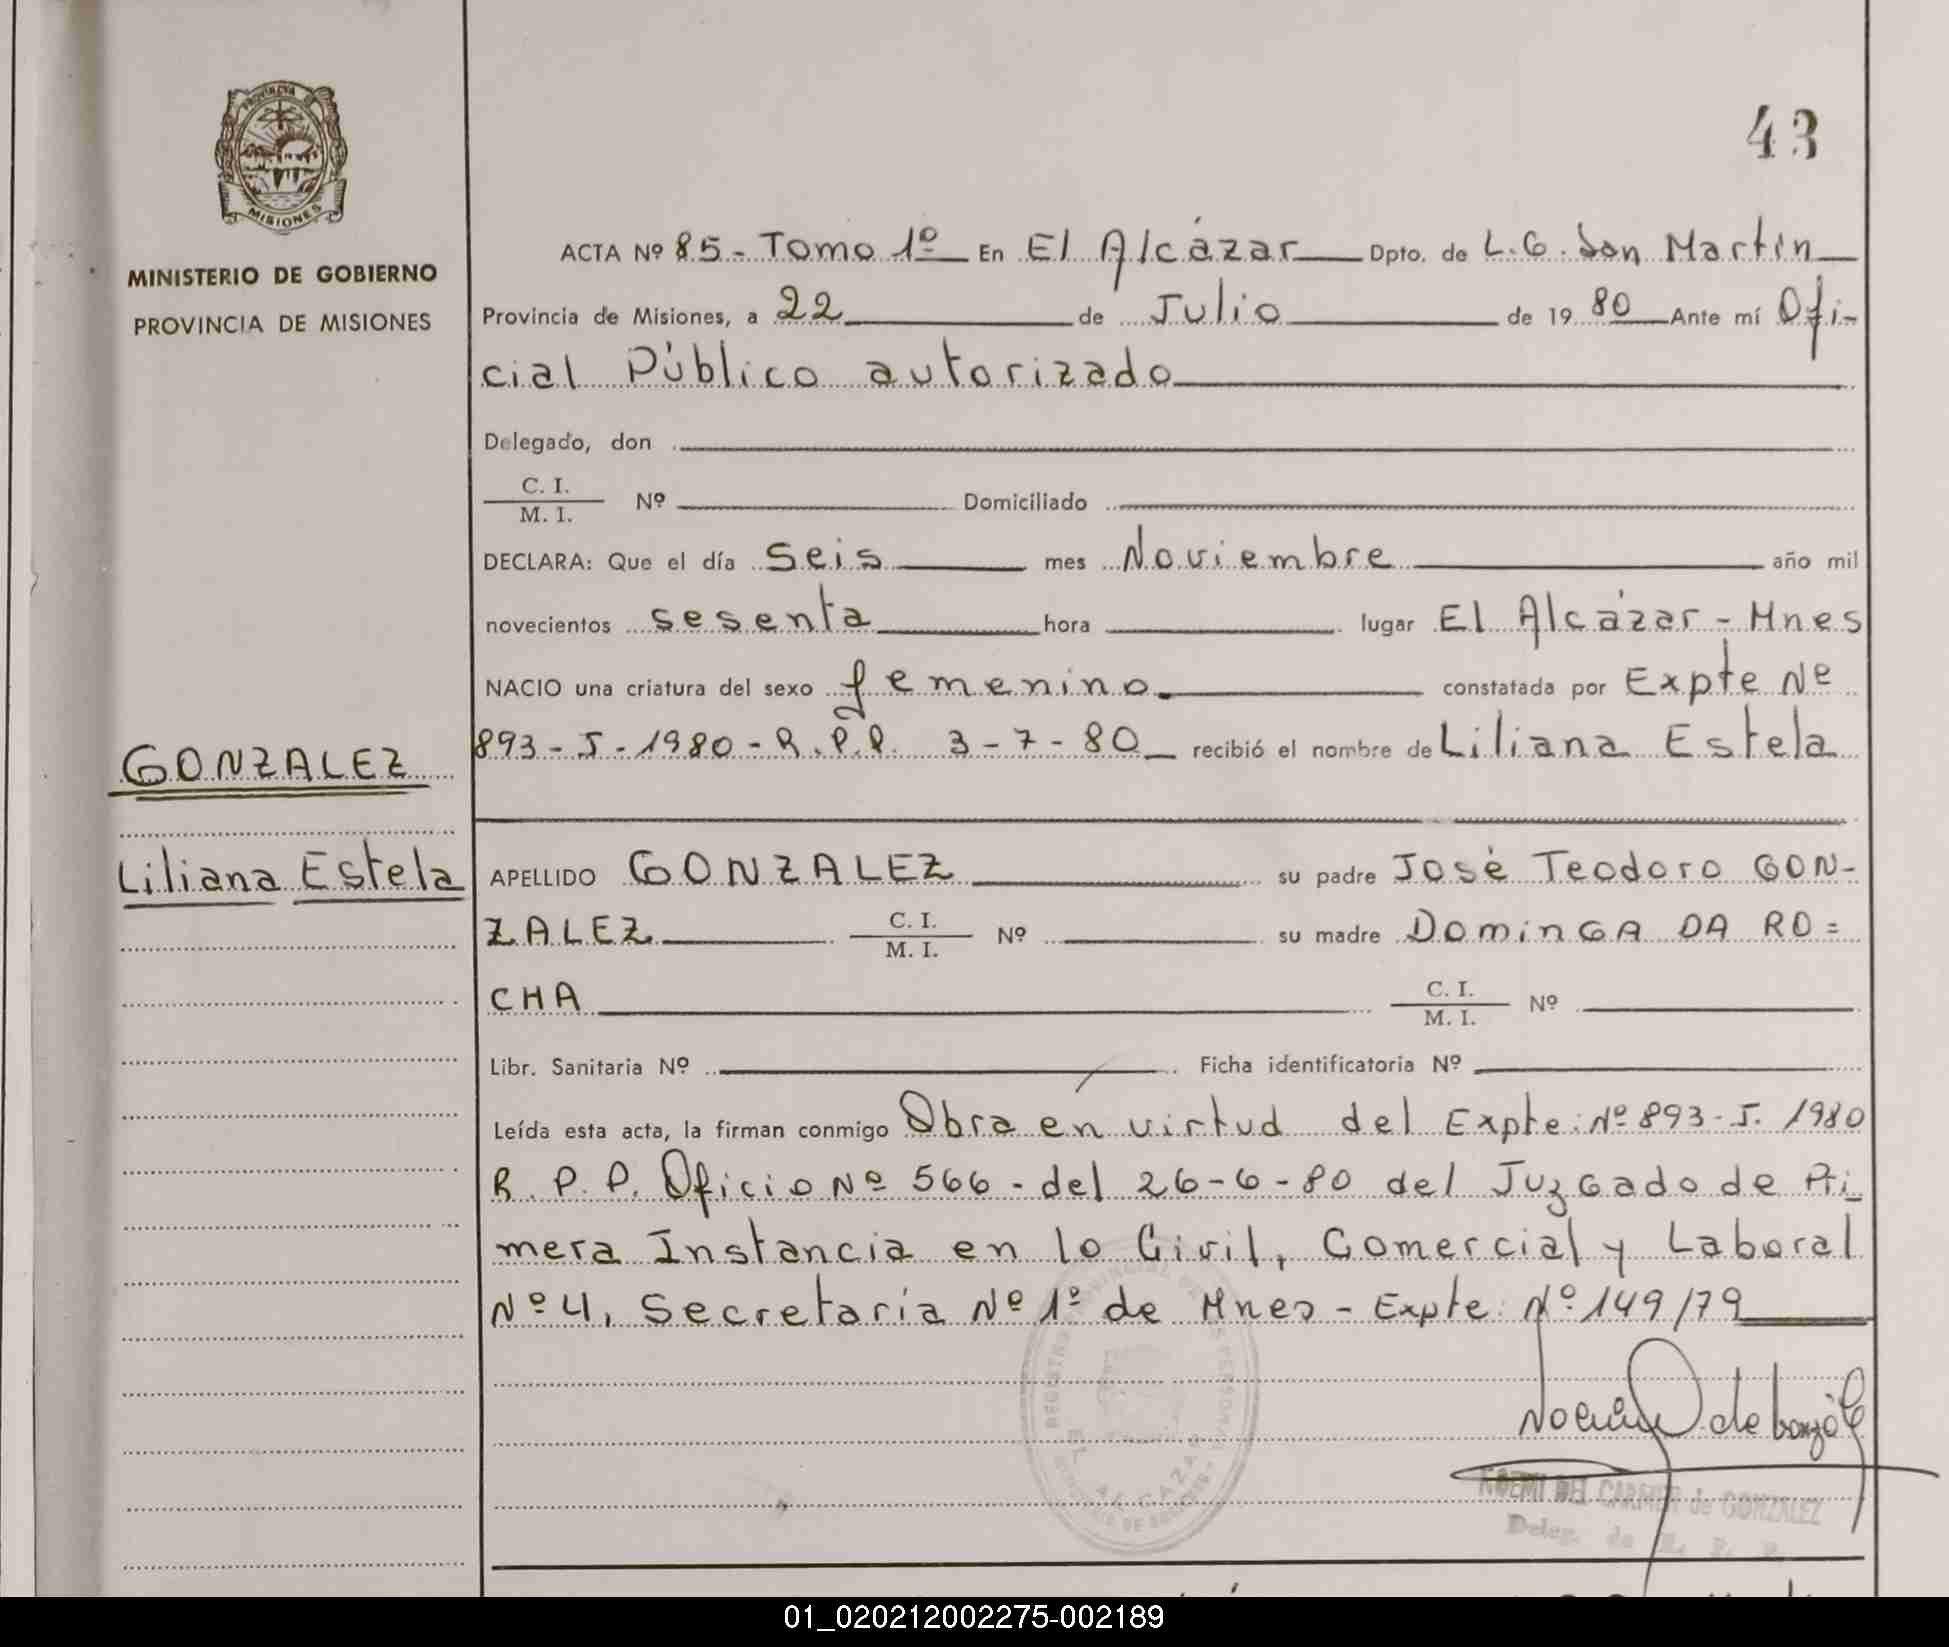 PROVINCIA DE
MISIONES
MINISTERIO DE GOBIERNO
PROVINCIA DE MISIONES
43
ACTA Nº 85 - Tomo 1º En El Alcázar Dpto. de L.G. San Martín
Provincia de Misiones, a 22 de Julio de 19 80 Ante mí Ofi-
cial Público autorizado
Delegado, don
C. I.
M. I. Nº Domiciliado
DECLARA: Que el día Seis mes Noviembre año mil
novecientos sesenta hora lugar El Alcázar - Mnes
NACIO una criatura del sexo femenino. constatada por Expte Nº
893 - I - 1980 - R.P.P. 3-7-80 recibió el nombre de Liliana Estela
GONZALEZ
Liliana Estela
APELLIDO GONZALEZ su padre José Teodoro GON-
ZALEZ C. I.
M. I. Nº su madre DominGA DA RO=
CHA C. I.
M. I. Nº
Libr. Sanitaria Nº Ficha identificatoria Nº
Leída esta acta, la firman conmigo Obra en virtud del Expte. Nº 893 - I. 1980
R. P. P. Oficio Nº 566 - del 26-6-80 del Juzgado de Pri-
mera Instancia en lo Civil, Comercial y Laboral
Nº 4, Secretaría Nº 1º de Mnes - Expte. Nº 149/79
EL ALCAZAR
NOEMI DEL CARMEN de GONZALEZ
Deleg. de R. P. P.
01_020212002275-002189